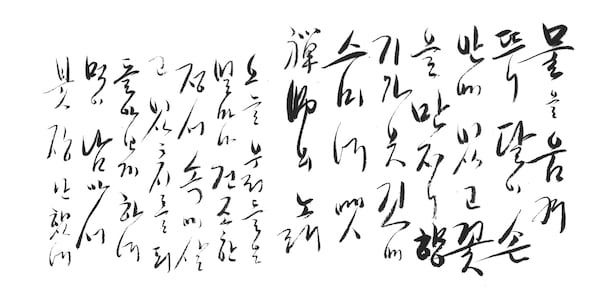 물을 움켜
뜨니 달이 손
안에 있고 꽃
을 만지니 향
기가 옷깃에
스미네 옛
禪師의 노래
오늘 우리들은
얼마나 건조한
정서 속에 살
고 있는지를 되
돌아보게 하네
먹이 남아서
붓장난했네